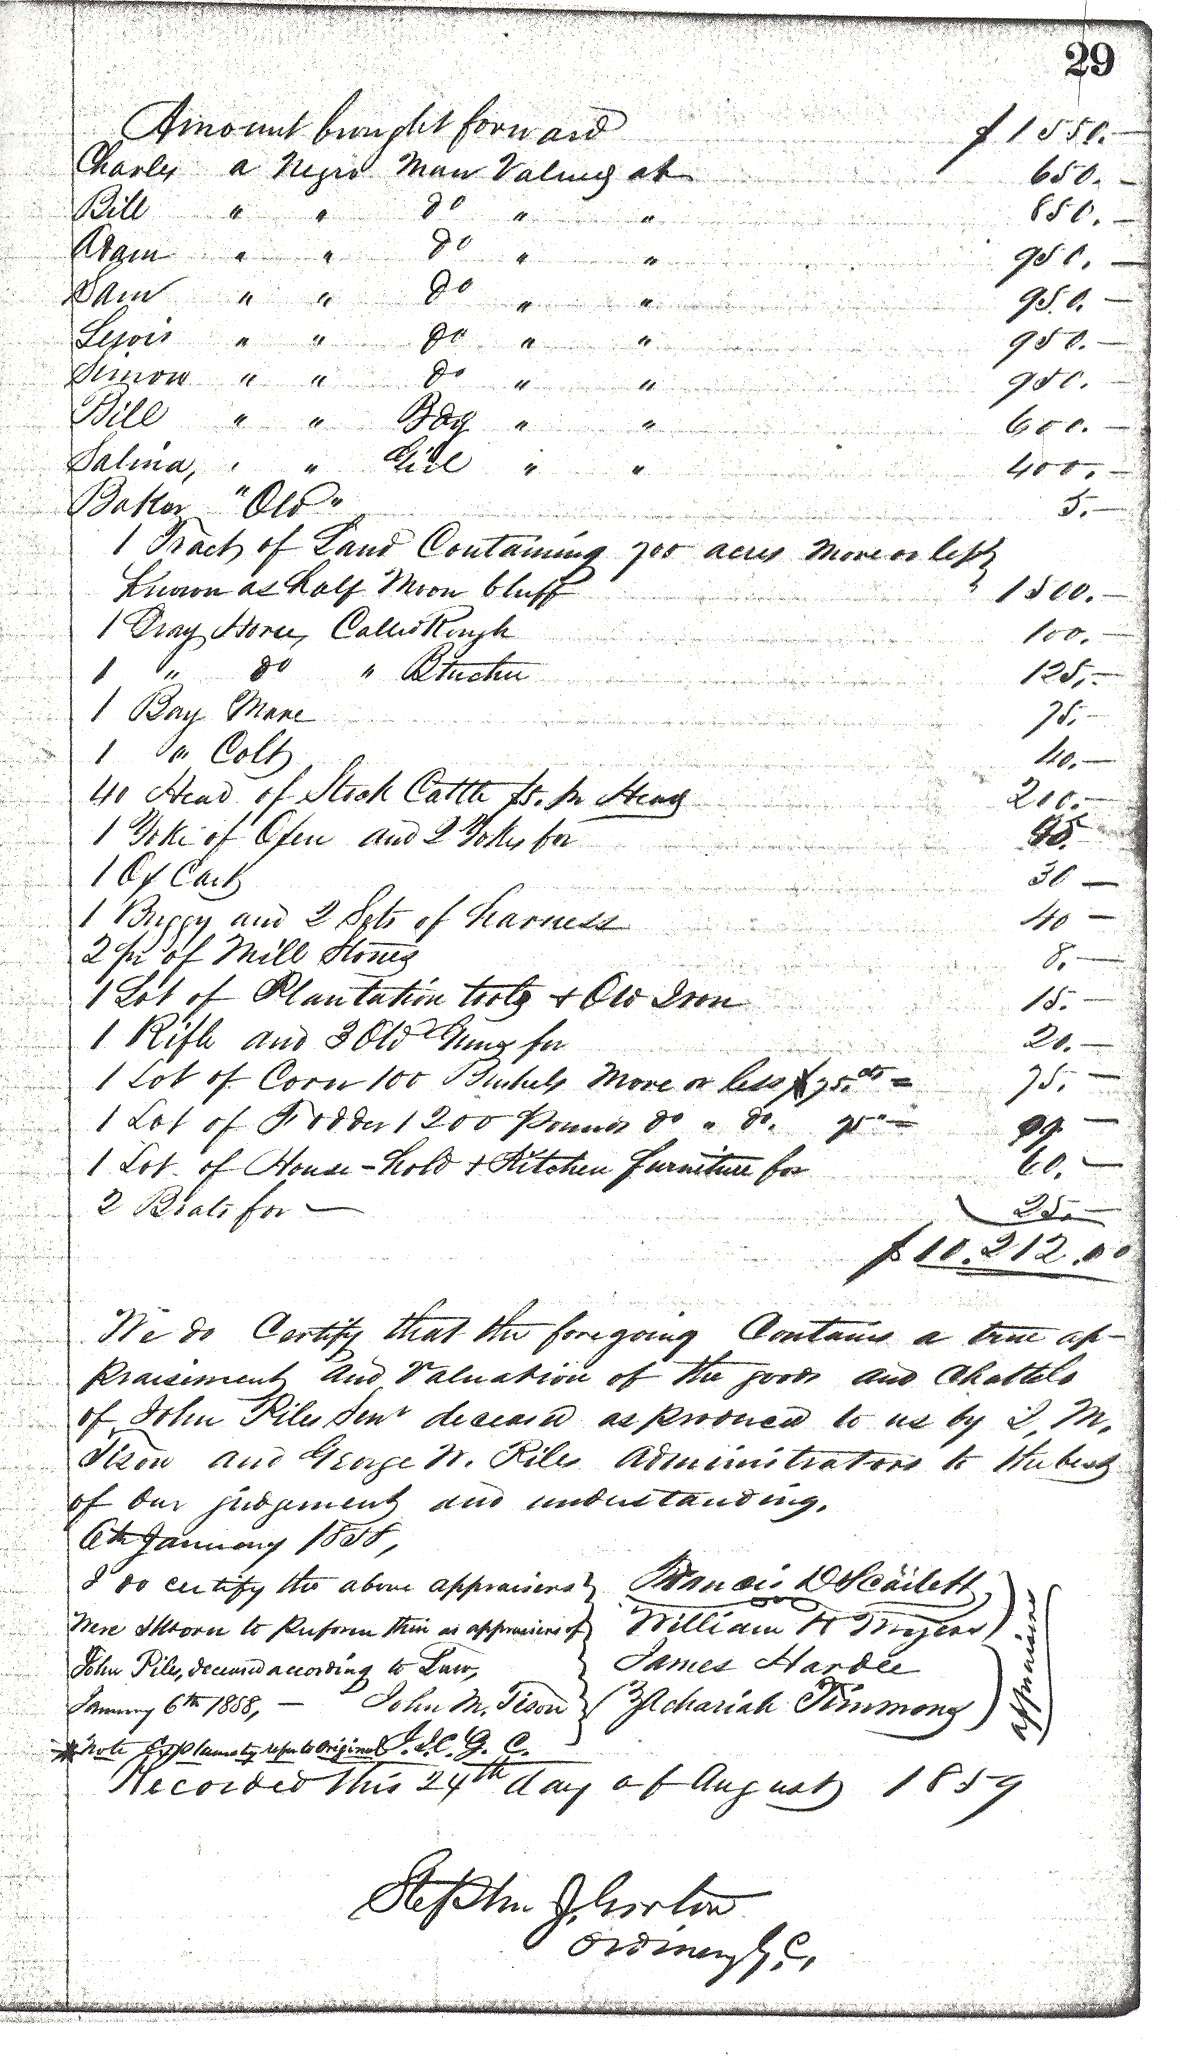 29
Amount brought forward $1550.—
Charles a Negro Man Valued at 650.—
Bill " " do " " 850.—
Adam " " do " " 950.—
Sam " " do " " 950.—
Lewis " " do " " 950.—
Simon " " do " " 950.—
Bill " " Boy " " 600.—
Salina, " " Girl " " 400.—
Baker " Old " 5.—
1 Tract of Land Containing 700 acres more or less
Known as half Moon bluff " 1500.—
1 Dray Horse, Called Rough 100.—
1 " do " 125.—
1 Bay Mare 75.—
1 " Colt 40.—
40 Head of Stock Cattle $5. pr Head 200.—
1 Yoke of Oxen and 2 Yokes for
1 Ox Cart 30 —
1 Buggy and 2 Sets of harness 40 —
2 pr of Mill Stones 8.—
1 Lot of Plantation tools + Old Iron 15.—
1 Rifle and 3 Old Guns for 20.—
1 Lot of Corn 100 Bushels more or less 75. cts = 75.—
1 Lot of Fodder 1200 Pounds do " do. 75 =
1 Lot of House-hold + Kitchen furniture for 60.—
2 Boats for — 25.—
$10.212.00
We do Certify that the foregoing Contains a true ap-
praisement and Valuation of the goods and Chattels
of John Piles Senr deceased as produced to us by J. M.
Tison and George W. Piles administrators to the best
of our judgement and understanding.
6th January 1858,
I do certify the above appraisers
Were Sworn to perform this as appraisers of
John Piles, deceased according to Law,
January 6th 1858, — John M. Tison
J. I. C. G. C.
Francis D Scarlett
William H Myers
James Hardee
Zachariah Timmons
appraisers
* Note Explanatory refer to Original
Recorded this 24th day of August 1859
Stephen J. Gorton
Ordinary G. C.